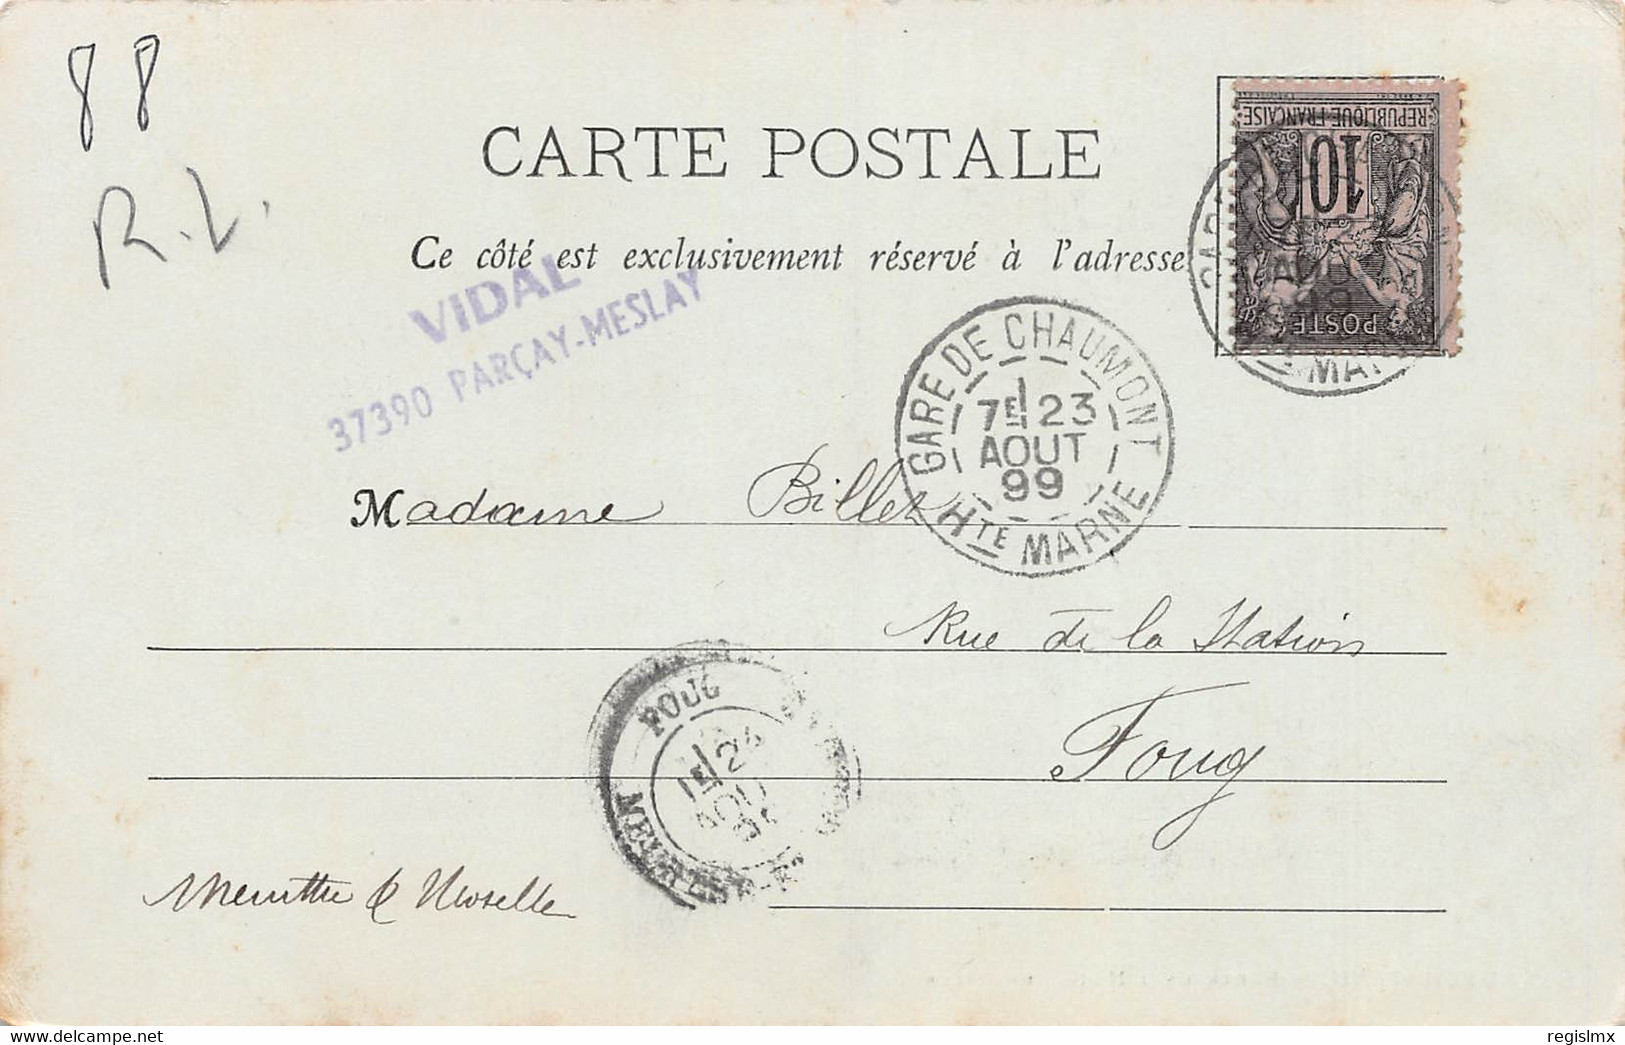 88
R.L.
CARTE POSTALE
Ce côté est exclusivement réservé à l'adresse
REPUBLIQUE FRANÇAISE
10
POSTE
VIDAL
37390 PARÇAY-MESLAY
GARE DE CHAUMONT
7E 23
AOUT
99
HTE MARNE
Madame Billet
Rue de la Station
FOUG
1E 23
AOU
Foug
Meurthe & Moselle
delcampe.net
regislmx